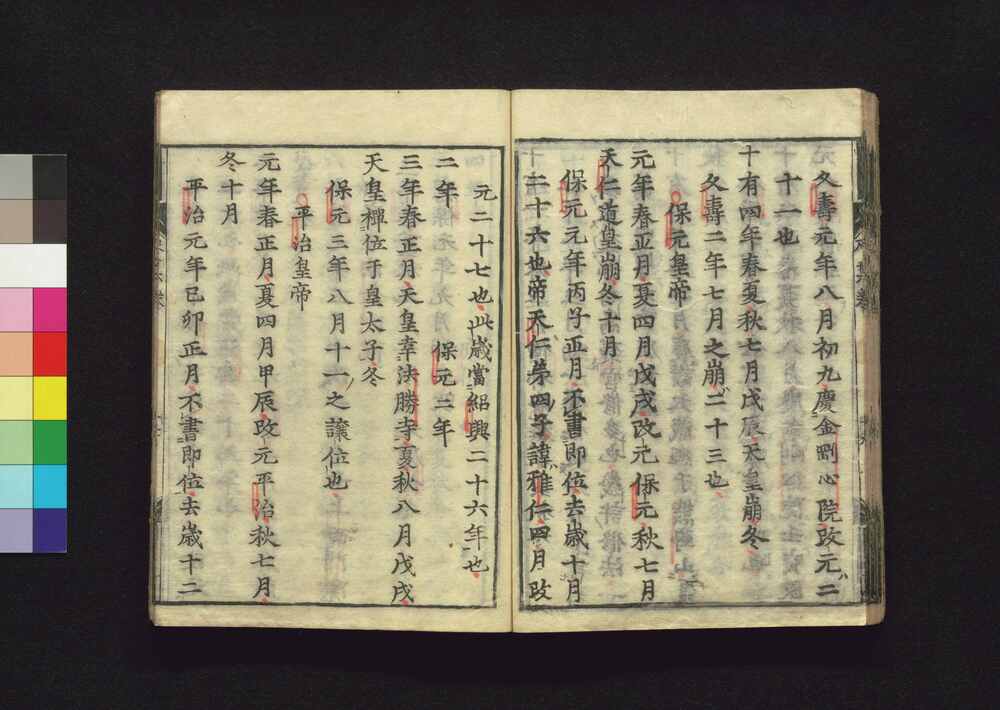 久壽元年八月初九慶金剛心院改元二
十一也
十有四年春夏秋七月戊辰天皇崩冬
久壽二年七月之崩二十三也
保元皇帝
元年春正月夏四月戊戌改元保元秋七月
天仁道皇崩冬十月
保元元年丙子正月不書即位去歲十月
二十六也帝天仁第四子諱雅仁四月改
元二十七也此歲當紹興二十六年也
二年
保元二年
三年春正月天皇幸法勝寺夏秋八月戊戌
天皇禪位于皇太子冬
保元三年八月十一之讓位也
平治皇帝
元年春正月夏四月甲辰改元平治秋七月
冬十月
平治元年己卯正月不書即位去歲十二